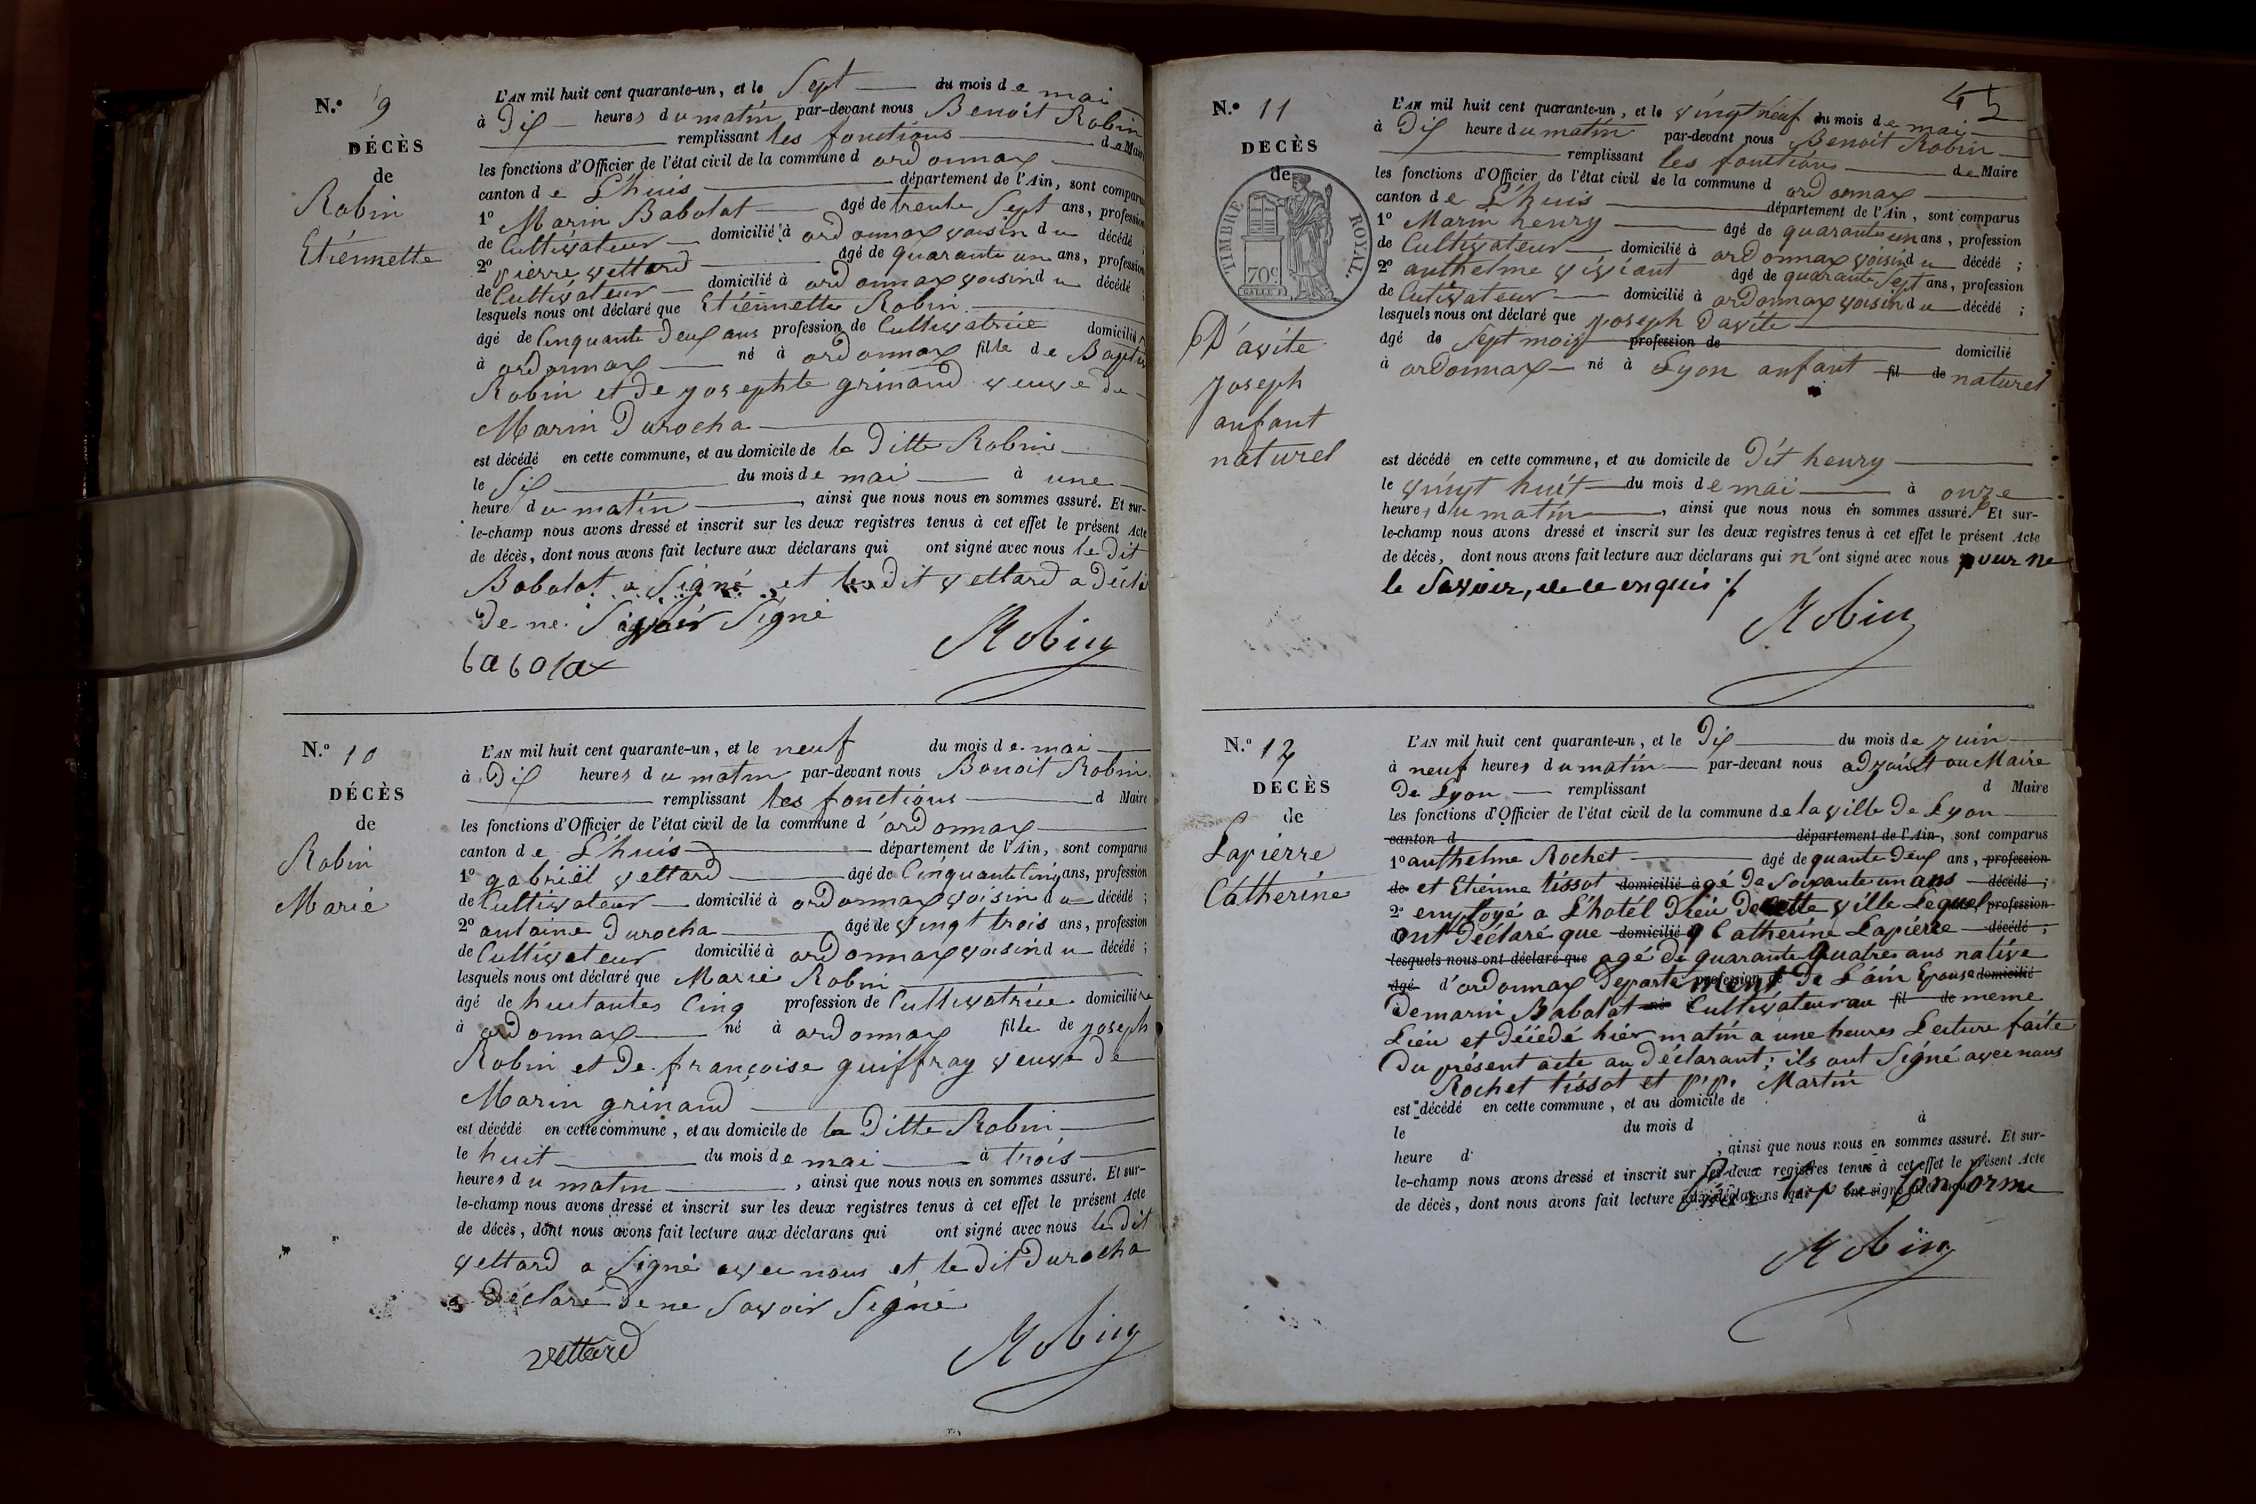 N.º 9
DÉCÈS
de
Robin
Etiennette
L'AN mil huit cent quarante-un, et le Sept du mois de mai
à Dix heures du matin par-devant nous Benoit Robin
remplissant les fonctions de Maire
les fonctions d'Officier de l'état civil de la commune d ordonnax
canton de L'huis département de l'Ain, sont comparus
1º Marin Babolat âgé de trente Sept ans, profession
de Cultivateur domicilié à ordonnax voisin du décédé ;
2º pierre vettard âgé de quarante un ans, profession
de Cultivateur domicilié à ordonnax voisin du décédé ;
lesquels nous ont déclaré que Etiennette Robin
âgé de Cinquante Deux ans profession de Cultivatrice domicilié
à ordonnax né à ordonnax fille de Baptiste
Robin et de josephte grinand veuve de
Marin Durocha
est décédé en cette commune, et au domicile de la Ditte Robin
le Six du mois de mai à une
heure du matin, ainsi que nous nous en sommes assuré. Et sur-
le-champ nous avons dressé et inscrit sur les deux registres tenus à cet effet le présent Acte
de décès, dont nous avons fait lecture aux déclarans qui ont signé avec nous le dit
Babolat a Signé et le dit vettard a Décla
De ne Savoir Signé
babolat Robin
N.º 10
DÉCÈS
de
Robin
Marie
L'AN mil huit cent quarante-un, et le neuf du mois de mai
à Dix heures du matin par-devant nous Benoit Robin
remplissant les fonctions d Maire
les fonctions d'Officier de l'état civil de la commune d'ordonnax
canton de L'huis département de l'Ain, sont comparus
1º gabriël vettard âgé de Cinquante Cinq ans, profession
de Cultivateur domicilié à ordonnax voisin du décédé ;
2º antoine Durocha âgé de vingt trois ans, profession
de Cultivateur domicilié à ordonnax voisin du décédé ;
lesquels nous ont déclaré que Marie Robin
âgé de huitantes Cinq profession de Cultivatrice domicilié
à ordonnax né à ordonnax fille de joseph
Robin et De françoise guiffray veuve de
Marin grinand
est décédé en cette commune, et au domicile de la Ditte Robin
le huit du mois de mai à trois
heures du matin, ainsi que nous nous en sommes assuré. Et sur-
le-champ nous avons dressé et inscrit sur les deux registres tenus à cet effet le présent Acte
de décès, dont nous avons fait lecture aux déclarans qui ont signé avec nous le dit
vettard a Signé avec nous et le dit Durocha
a Déclaré De ne Savoir Signé
vettard Robin
45
N.º 11
DECÈS
de
TIMBRE ROYAL
70c
D'avite
joseph
anfant
naturel
L'AN mil huit cent quarante-un, et le vingt neuf du mois de mai
à Dix heure du matin par-devant nous Benoit Robin
remplissant les fonctions de Maire
les fonctions d'Officier de l'état civil de la commune d ordonnax
canton de L'huis département de l'Ain, sont comparus
1º Marin henry âgé de quarante un ans, profession
de Cultivateur domicilié à ordonnax voisin du décédé ;
2º anthelme viviant âgé de quarante Sept ans, profession
de Cutivateur domicilié à ordonnax voisin du décédé ;
lesquels nous ont déclaré que joseph Davite
âgé de Sept mois profession de domicilié
à ordonnax né à Lyon anfant fil de naturel
est décédé en cette commune, et au domicile de Dit henry
le vingt huit du mois de mai à onze
heures du matin, ainsi que nous nous en sommes assuré. Et sur-
le-champ nous avons dressé et inscrit sur les deux registres tenus à cet effet le présent Acte
de décès, dont nous avons fait lecture aux déclarans qui n'ont signé avec nous pour ne
le Savoir, de ce enquis
Robin
N.º 12
DECÈS
de
Lapierre
Catherine
L'AN mil huit cent quarante-un, et le Dix du mois de juin
à neuf heures du matin par-devant nous adjoint au Maire
De Lyon remplissant d Maire
les fonctions d'Officier de l'état civil de la commune de la ville De Lyon
canton d département de l'Ain, sont comparus
1º anthelme Rochet âgé de quante Deux ans, profession
de et Etienne tissot domicilié âgé De Soixante un ans décédé ;
2º employé a L'hotél Dieu De cette ville Lequel profession
ont Déclaré que domicilié Catherine Lapierre décédé ;
lesquels nous ont déclaré que agé de quarante quatres ans native
âgé d'ordonnax Departement profession De L'ain Epouse domicilié
De marin Babolat né Cultivateur au fil de meme
Lieu et Décédé hièr matin a une heures Lecture faite
Du présent acte au Déclarant ; ils ont Signé avec nous
Rochet tissot et p.p. Martin
est décédé en cette commune, et au domicile de
le du mois d à
heure d , ainsi que nous nous en sommes assuré. Et sur-
le-champ nous avons dressé et inscrit sur les deux registres tenus à cet effet le présent Acte
de décès, dont nous avons fait lecture aux déclarans qui ont signé avec nous Conforme
Robin